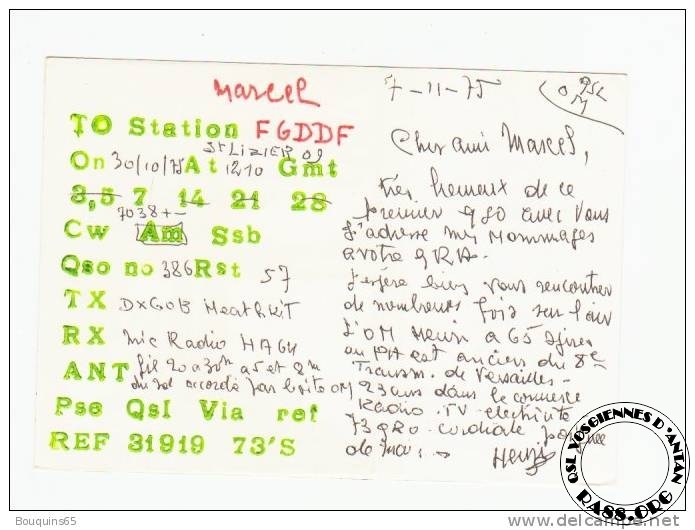 Marcel
TO Station F6DDF
St LiZiER 09
On 30/10/75 At 1210 Gmt
3,5 7 14 21 28
7038 +-
Cw Am Ssb
Qso no 386 Rst 57
TX DX60B Heathkit
RX Mic Radio
ANT fil 20 a
du sol accordé par boite OM
Pse Qsl Via ref
REF 31919 73'S
7-11-75
QSL
OM
Cher ami Marcel,
très heureux de ce
premier QSO avec vous
J'adresse mes Hommages
a votre QRA.
J'espère bien vous rencontrer
de nombreuses fois sur l'air
L'OM Henri a 65
est ancien du 8e
Transm. de Versailles -
23 ans dans le commerce
Radio. TV. electricité
73 QRO. cordiale poignée
de main. Henri
QSL VOSGIENNES D'ANTAN
RASS.ORG
Bouquins65
www.delcampe.net